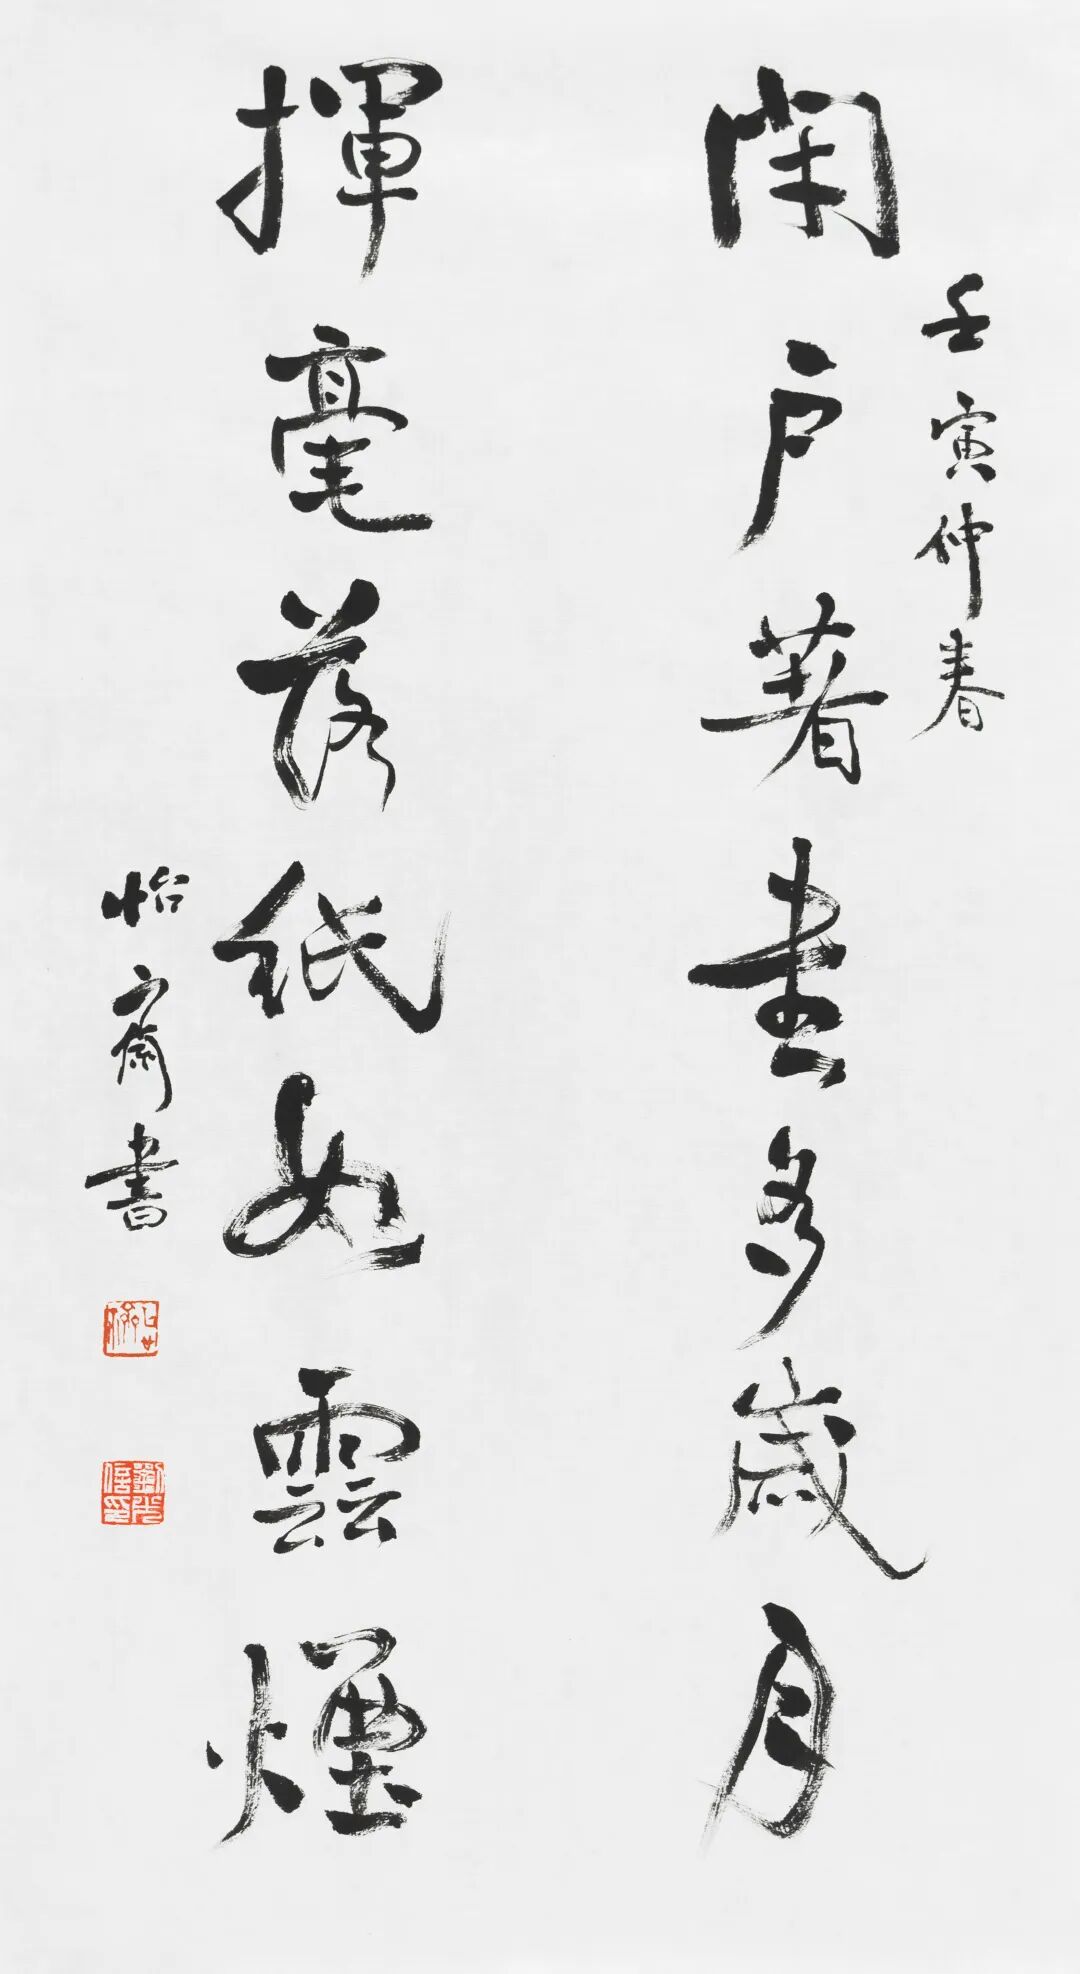 壬寅仲春
閉户著書多歲月
揮毫落紙如雲煙
怡齋書